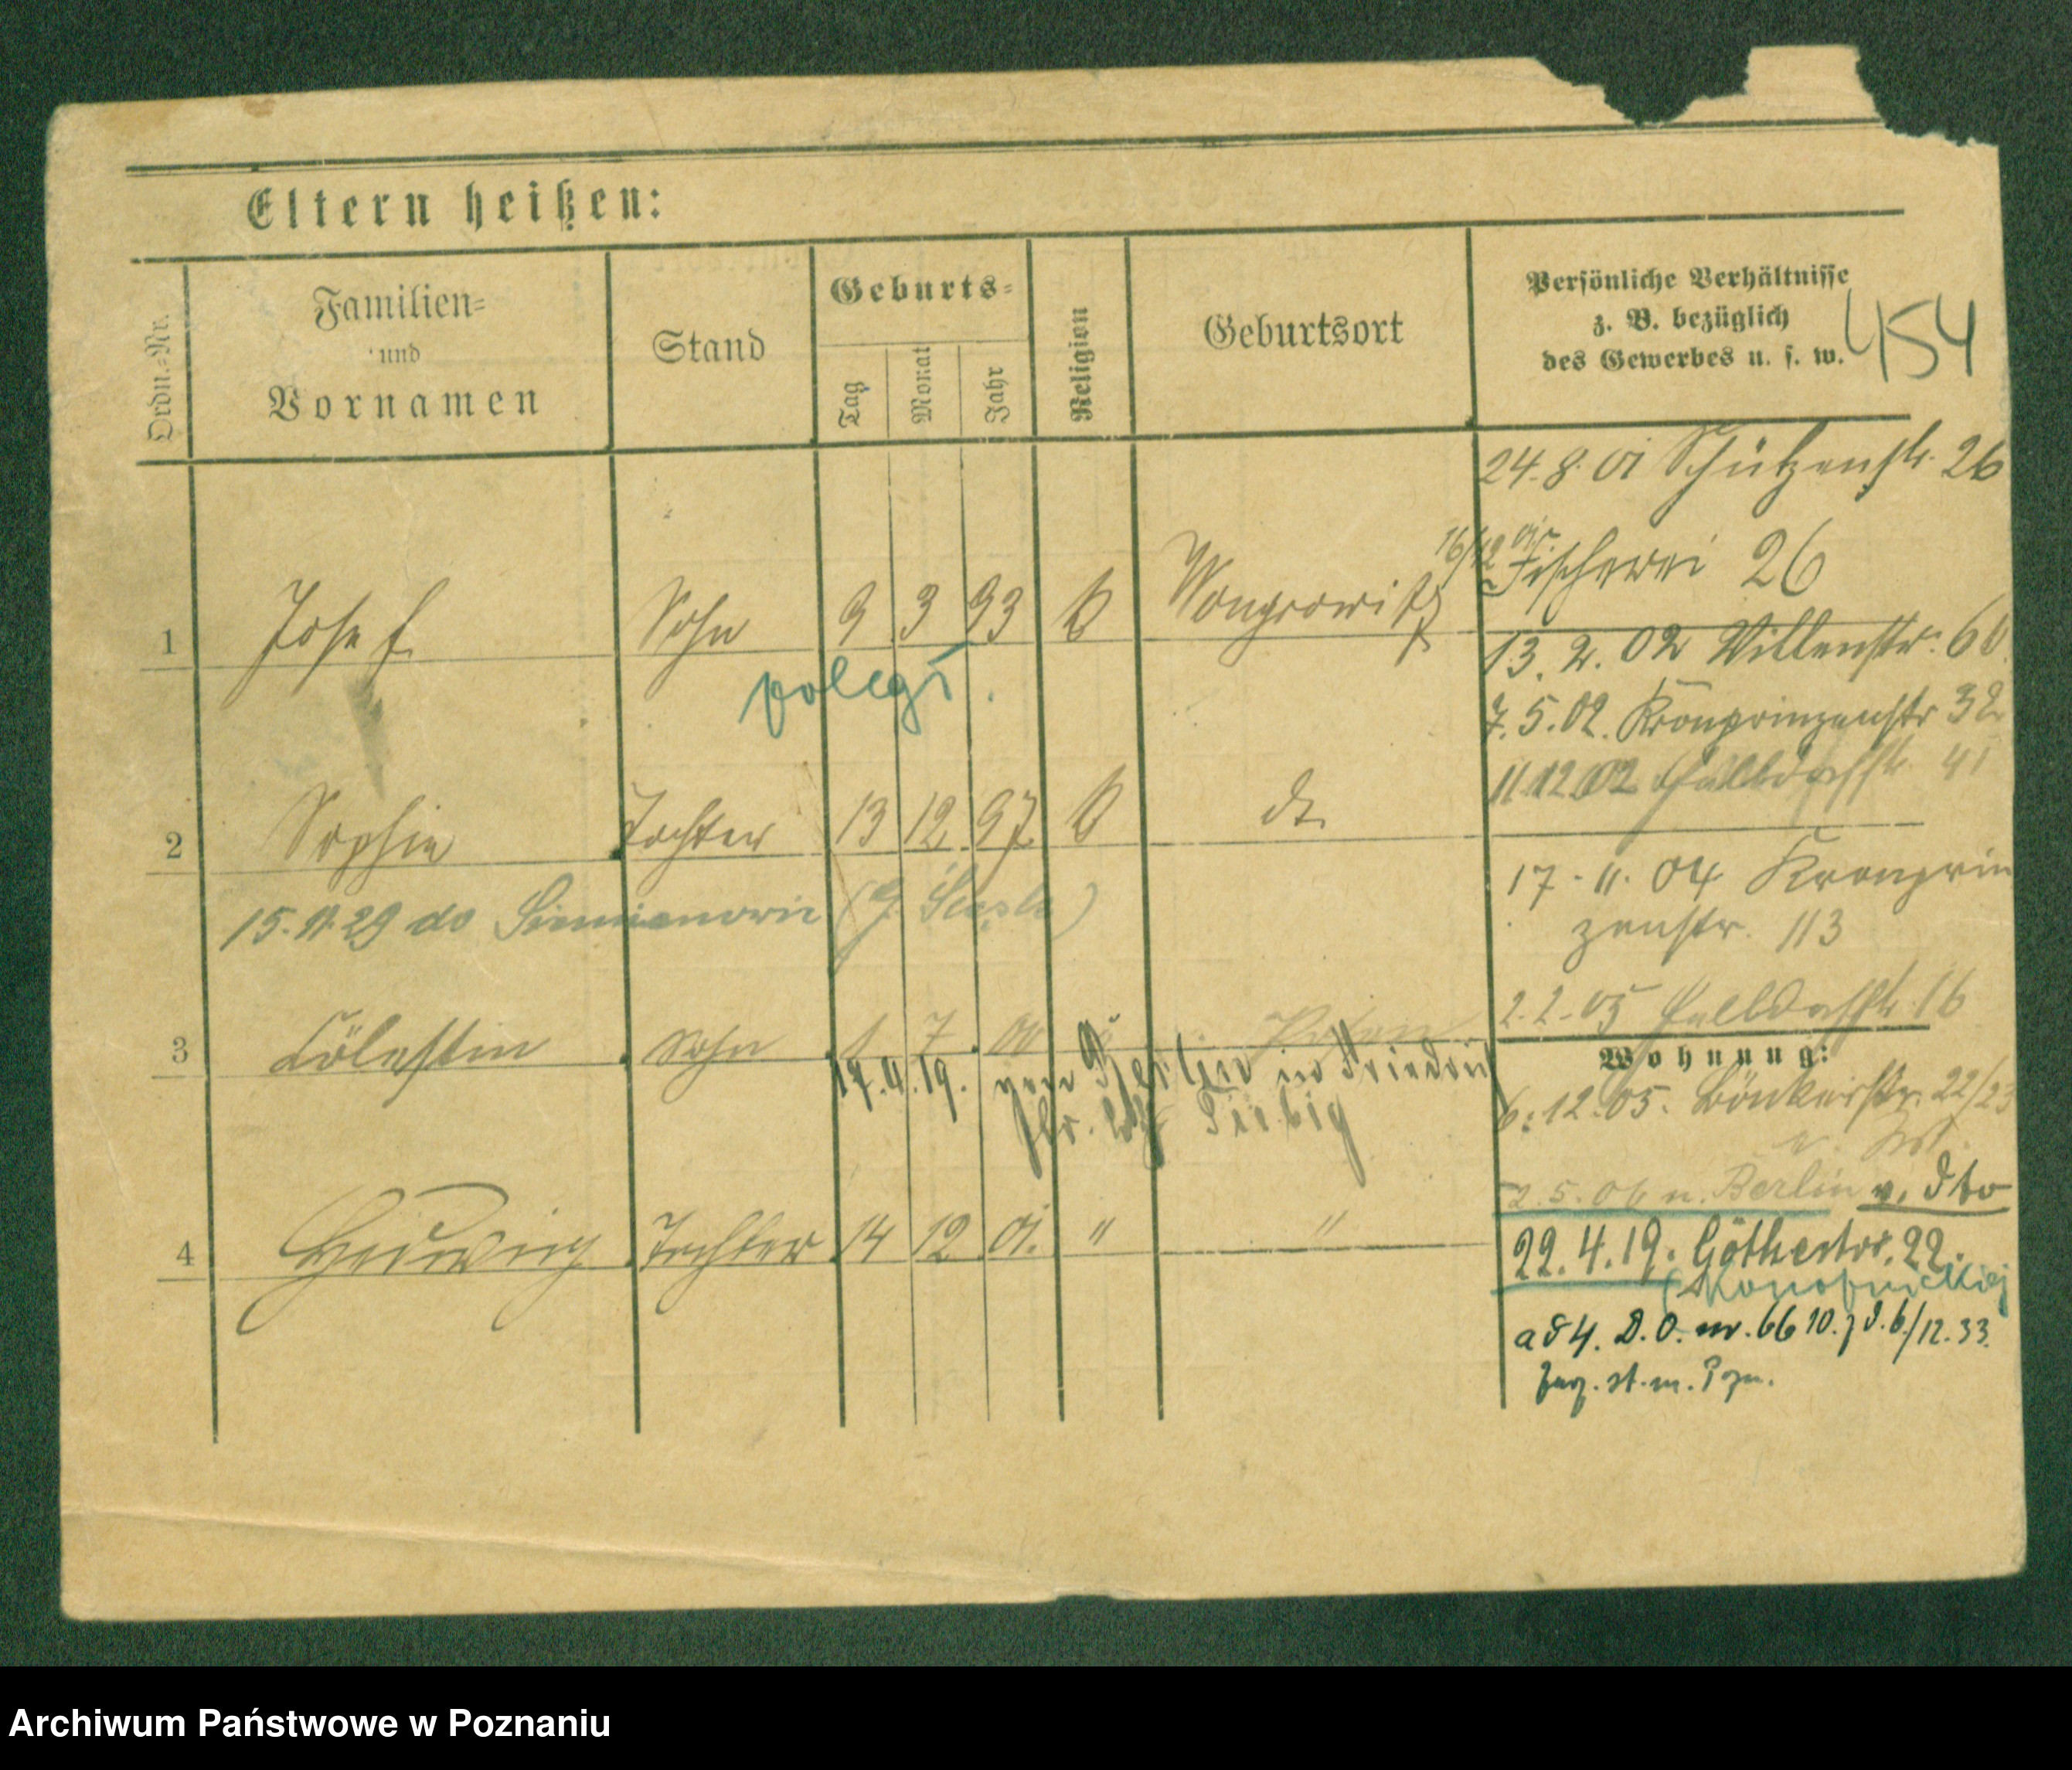 Eltern heißen:
Ordn.=Nr.
Familien=
und
Vornamen
Stand
Geburts=
Tag
Monat
Jahr
Religion
Geburtsort
Persönliche Verhältnisse
z. B. bezüglich
des Gewerbes u. s. w.
454
24.8.01 Schützenstr. 26
16/12 01 Fischerei 26
1 Josef Sohn 9 3 93 k Wongrowitz
poległ.
13.2.02 Villenstr. 6
7.5.02. Kronprinzenstr 32
11 12 02 Halldorfstr. 41
2 Sophie Tochter 13 12 97 k dt.
15.11.29 do Siemianowic (G. Śląsk)
17.11.04 Kronprin
zenstr. 113
2.2.05 Halldorfstr. 16
3 Cölestin Sohn 1 7 00 Posen
17.4.19. von Berlin in
Wohnung:
6.12.05. Bänkerstr. 22/23
2.5.06 n. Berlin v. dto
4 Hedwig Tochter 14 12 01. " "
22.4.19. Göthestr. 22.
(Konopnickiej
ad 4. D.O. nr. 66 10. z d. 6/12.33.
Zarz. st. m. Pozn.
Archiwum Państwowe w Poznaniu